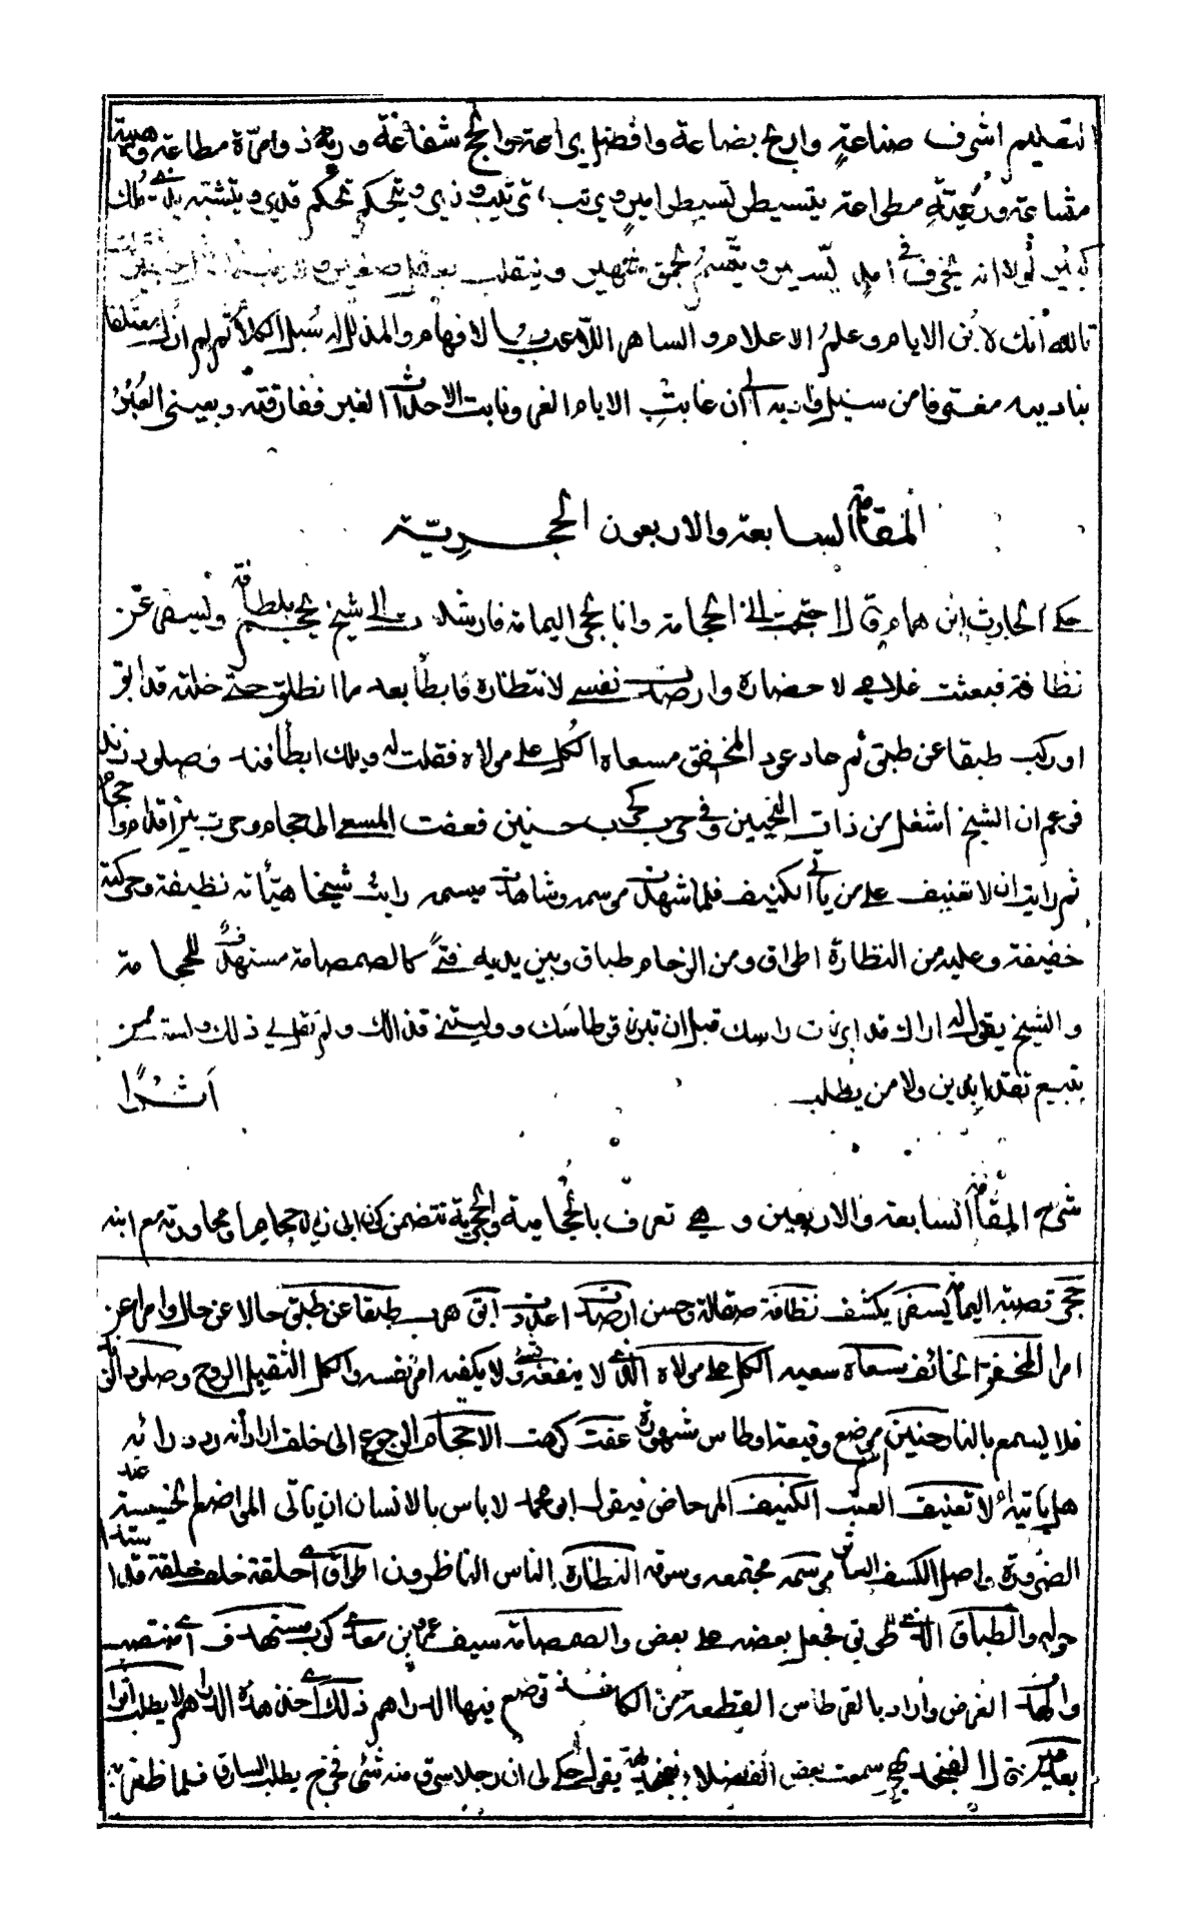 التعليم اشرف صناعة واربح بضاعة وافضل براعة وانجح شفاعة وربه ذو امرة مطاعة وهيبة
مشاعة ورعية مطواعة يتسيطر تسيطر امير ويرتب ترتيب وزير ويتحكم تحكم قدير ويتشبه بذى ملك
كبير لولا انه يخرف في امد يسير ويتسم بحمق شهير ويتقلب بعقل صغير ولا ينبئك
تالله انك لابن الايام وعلم الاعلام والساهر اللاعب بالافهام والمذلل له سبل الكلام ثم لم ازل معتكفا
بناديه مغترفا من سيل واديه الى ان غابت الايام الغر ونابت الاحداث الغبر ففارقته وبعينى العبر
المقامة السابعة والاربعون الحجرية
حكى الحارث بن همام قال احتجت الى الحجامة وانا بحجر اليمامة فارشدت الى شيخ يحجم بلطافة ويسفر عن
نظافة فبعثت غلامى لاحضاره وارصدت نفسى لانتظاره فابطأ بعد ما انطلق حتى خلته قد ابق
او ركب طبقا عن طبق ثم عاد عود المخفق مسعاه الكل على مولاه فقلت له ويلك ابطأ فند وصلود زند
فزعم ان الشيخ اشغل من ذات النحيين وفى حرب كحرب حنين فعفت المسعى الى حجام وحرت بين اقدام واحجام
ثم رايت ان لا تعنيف على من يأتى الكنيف فلما شهدت موسمه وشاهدت ميسمه رايت شيخا هيأته نظيفة وحركته
خفيفة وعليه من النظارة اطواق ومن الزحام طباق وبين يديه فتى كالصمصامة مستهدف للحجامة
والشيخ يقول له اراك قد ابرزت راسك قبل ان تبرز قرطاسك ووليتنى قذالك ولم تقل لى ذا لك ولست ممن
يبيع نقدا بدين ولا من يطلب اثرا
شرح المقامة السابعة والاربعين وهى تعرف بالحجامية والحجرية تتضمن كون ابى زيد حجاما ومحاورته مع ابنه
حجر قصبة اليمامة يسفر يكشف نظافة صقالة وحسن ارصدت اعددت ابق هرب طبقا عن طبق حالا عن حال وامرا عن
امر المخفق الخائف مسعاه سعيه الكل على مولاه الذى لا ينفعه ولا يكفيه امر نفسه والكل الثقيل الروح وصلود الزند
فلا يسمح بالنار حنين موضع وقيعة اوطاس مشهورة عفت كرهت الاحجام الرجوع الى خلف اراد انه ردد رائه
هل ياتيه ام لا تعنيف العتب الكنيف المرحاض فيقول ابو محمد لا باس بالانسان ان ياتى المواضع الخسيسة عند
الضرورة واصل الكنف الساتر موسمه مجتمعه وسوقه النظارة الناس الناظرون اطواق اى حلقة خلف حلقة قد استدا
حوله والطباق الذى طوبق فجعل بعضه على بعض والصمصامة سيف عمرو بن معدى كرب مستهدف اى منتصب
والهدف الغرض واراد بالقرطاس القطعة من الكاغذ توضع فيها الدراهم ذلك اى خذ هذه الدراهم لا يطلب اثرا
بعد عين قال الفنجديهى سمعت بعض الفضلاء يقول حكى لى ان رجلا سرق منه شئ فخرج يطلب السارق فلما ظفر به